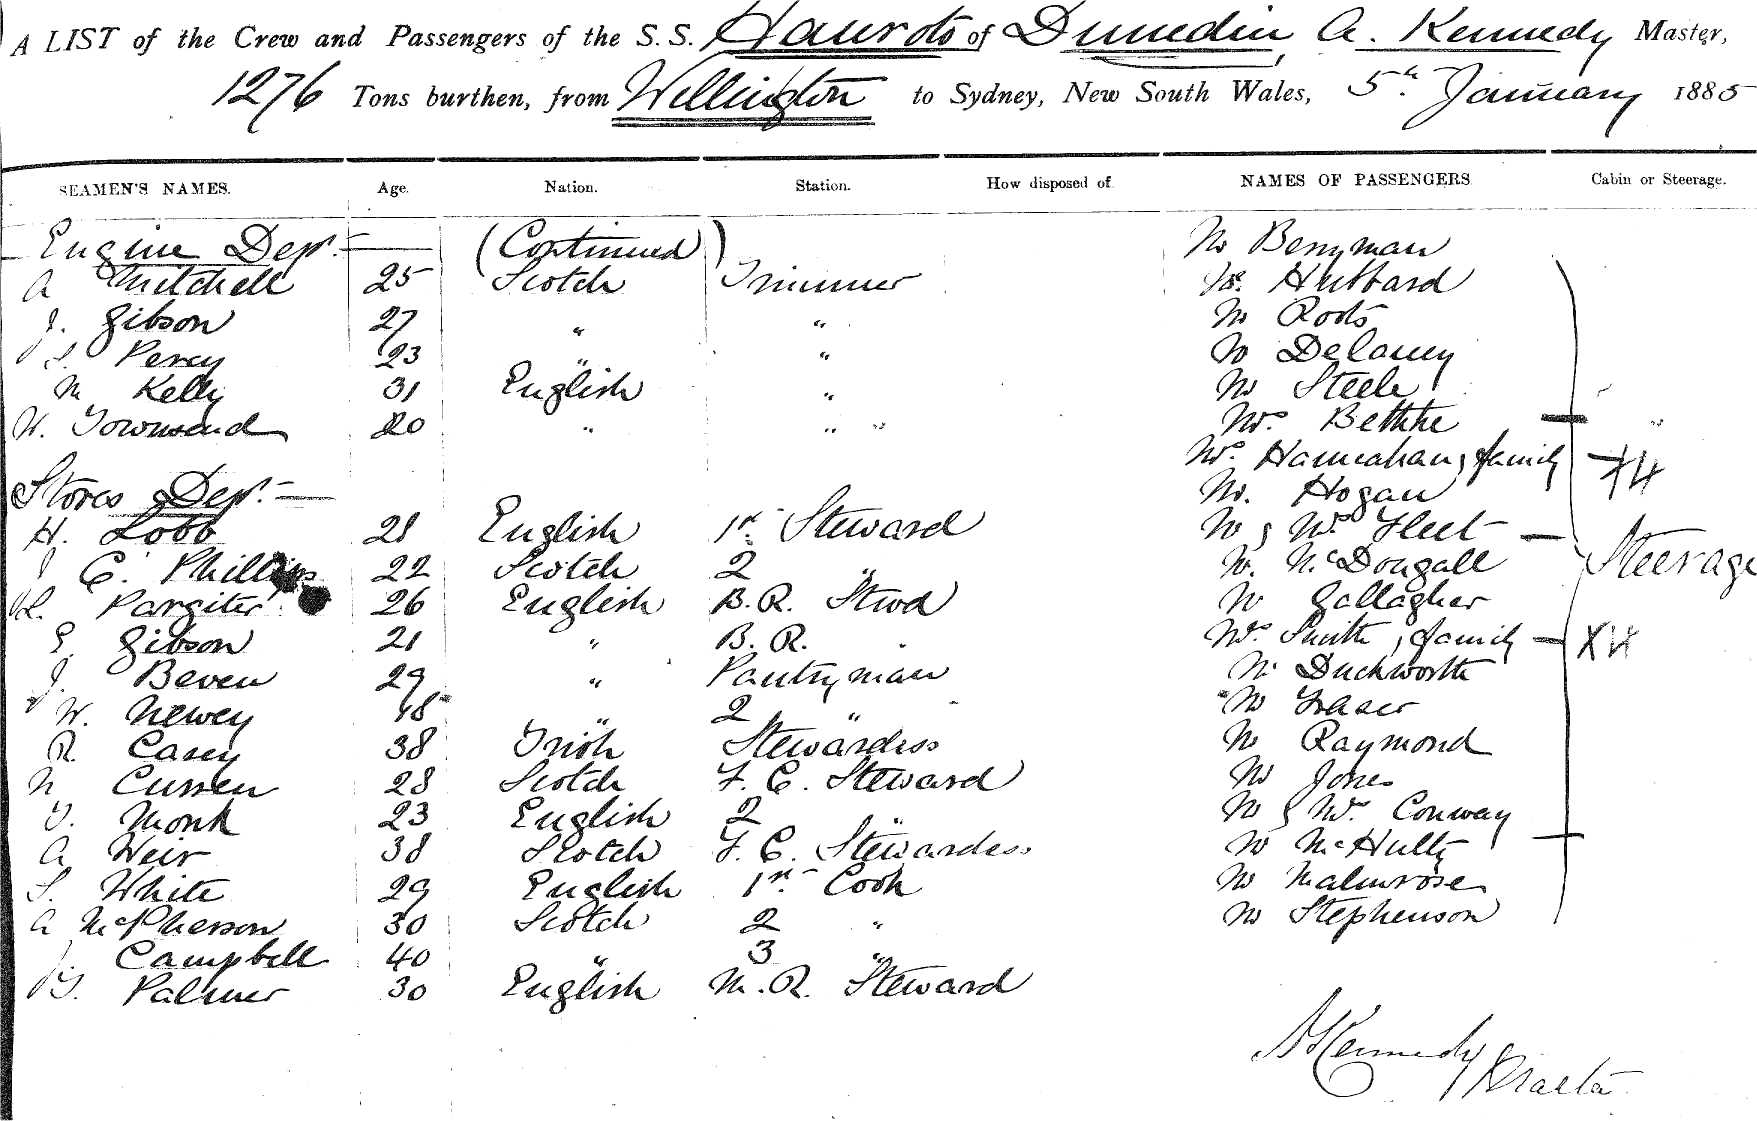 A LIST of the Crew and Passengers of the S.S. Hauroto of Dunedin, A. Kennedy Master,
1276 Tons burthen, from Wellington to Sydney, New South Wales, 5th January 1885
SEAMEN'S NAMES. Age. Nation. Station. How disposed of NAMES OF PASSENGERS Cabin or Steerage.
Engine Dept. — (Continued) Mr Berryman
A Mitchell 25 Scotch Trimmer Hubbard
J. Gibson 27 " " Mr Roots
S. Percy 23 " " Mr Delaney
M Kelly 31 English " Mr Steele
W. Townsend 20 " " " Mrs. Bethke "
Mrs. Hannahan, family 74
Stores Dept. — Mr. Hogan
H. Lobb 28 English 1st Steward Mr & Mrs Fleet
J C. Phillips 22 Scotch 2 " Mr. McDougall Steerage
L. Pargiter 26 English B.R. Stwd Mr Gallagher
E Gibson 21 " B.R. " Mrs Smith, family
J. Beven 29 " Pantryman Mr Duckworth
W. Newey 18 " 2 " Mr Fraser
R. Casey 38 Irish Stewardess Mr Raymond
N Curren 28 Scotch F.C. Steward Mr Jones
T. Monk 23 English 2 " Mr & Mrs. Conway
A Weir 38 Scotch F.C. Stewardess Mr McHulty
S. White 29 English 1st Cook Mr Malmrose
A McPherson 30 Scotch 2 " Mr Stephenson
J. Campbell 40 " 3 "
G. Palmer 30 English M.R. Steward
A Kennedy Master